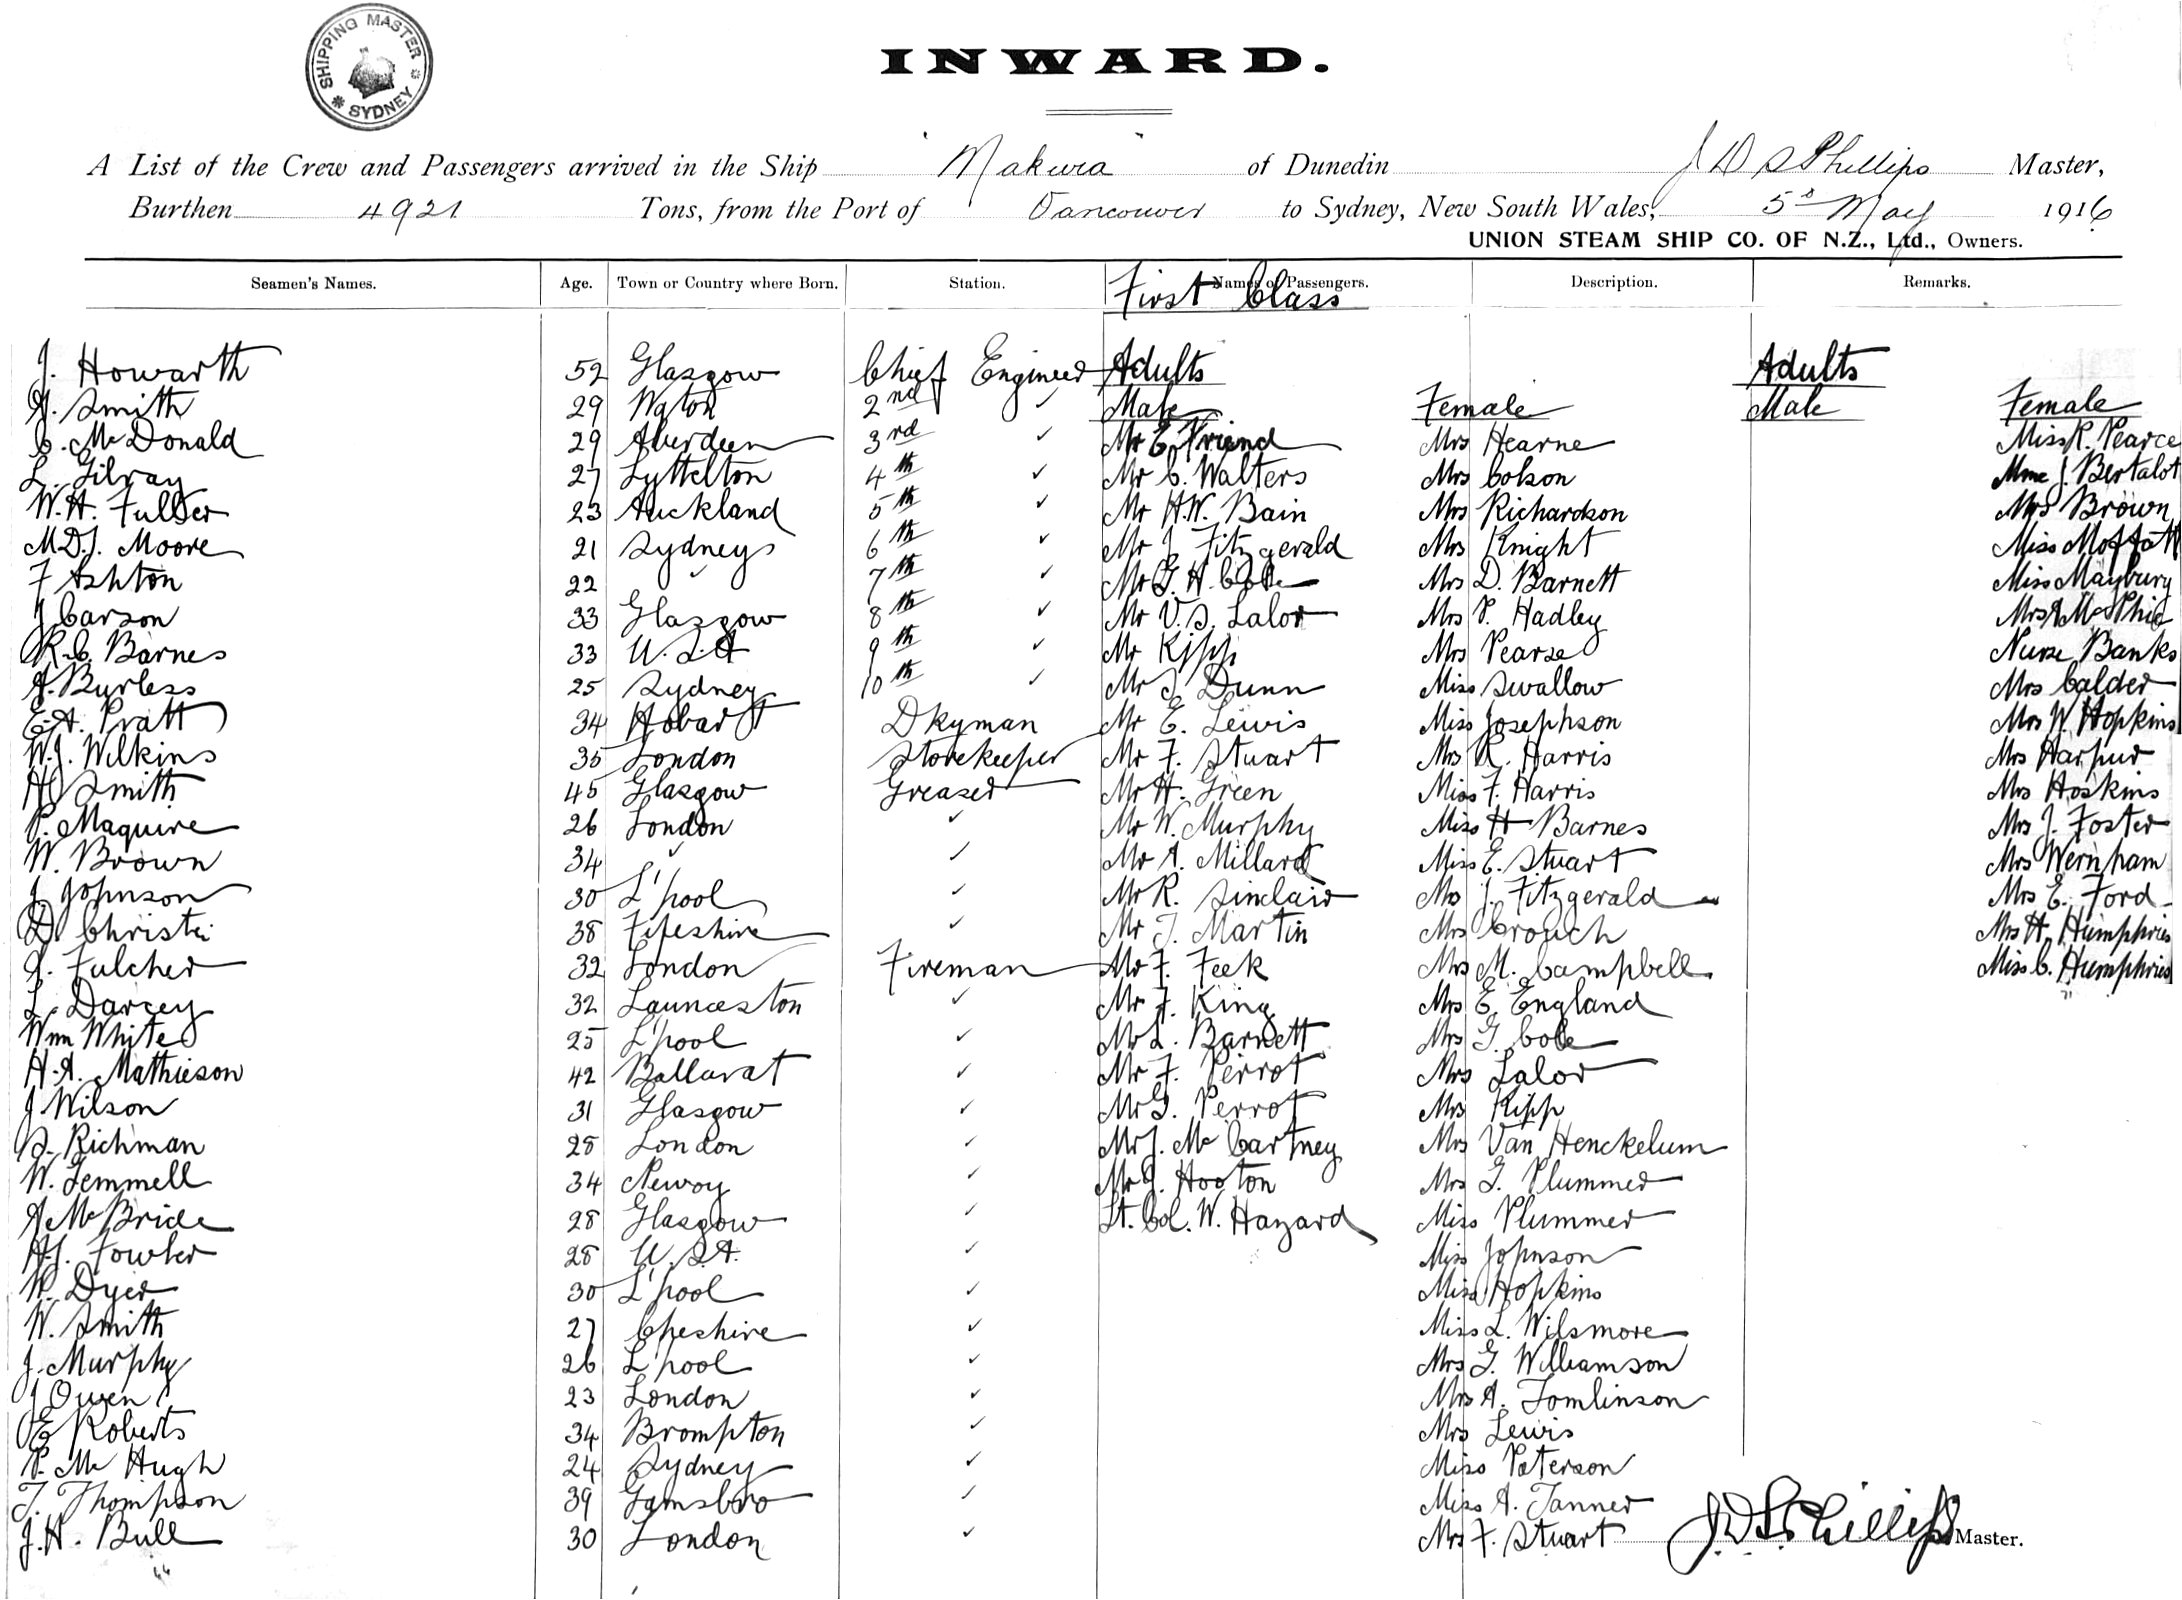 SHIPPING MASTER
SYDNEY
INWARD.
A List of the Crew and Passengers arrived in the Ship "Makura" of Dunedin J D S Phillips Master,
Burthen 4921 Tons, from the Port of Vancouver to Sydney, New South Wales, 5th May 1916
UNION STEAM SHIP CO. OF N.Z., Ltd., Owners.
Seamen's Names. Age. Town or Country where Born. Station. Names of Passengers. Description. Remarks.
First Class
J. Howarth 52 Glasgow Chief Engineer Adults Adults
Smith 29 2nd ✓ Male Female Male Female
C. McDonald 29 Aberdeen 3rd ✓ Mr E. Friend Mrs Hearne Miss R. Pearce
L. Gilray 27 Lyttelton 4th ✓ Mr C. Walters Mrs Colson Mme J. Bertalot
W.H. Fuller 23 Auckland 5th ✓ Mr H.W. Bain Mrs Richardson Mrs Brown
M.D.J. Moore 21 Sydney 6th ✓ Mr J. Fitzgerald Mrs Knight Miss Moffatt
F Ashton 22 ✓ 7th ✓ Mr G. H. Cole Mrs D. Barnett Miss Maybury
J Carson 33 Glasgow 8th ✓ Mr V.S. Lalor Mrs P. Hadley Mrs A McPhie
R.C. Barnes 33 U.S.A 9th ✓ Mr Kipp Mrs Pearse Nurse Banks
Burless 25 Sydney 10th ✓ Mr J Dunn Miss Swallow Mrs Calder
E.A. Pratt 34 Hobart Dkyman Mr E. Lewis Miss Josephson Mrs W. Hopkins
W.J. Wilkins 35 London Storekeeper Mr F. Stuart Mrs R. Harris Mrs Harpur
H Smith 45 Glasgow Greaser Mr H. Green Miss F. Harris Mrs Hoskins
P. Maguire 26 London ✓ Mr W. Murphy Miss H Barnes Mrs J. Foster
W. Brown 34 ✓ ✓ Mr A. Millard Miss E. Stuart Mrs Wernham
J. Johnson 30 L'pool ✓ Mr R. Sinclair Mrs J. Fitzgerald Mrs E. Ford
D. Christie 38 Fifeshire ✓ Mr J. Martin Mrs Crouch Mrs H. Humphries
J. Fulcher 32 London Fireman Mr F. Feek Mrs M. Campbell Miss C. Humphries
L. Darcey 32 Launceston ✓ Mr F. King Mrs E. England
Wm White 25 L'pool ✓ Mr L. Barnett Mrs G. Cole
H.A. Mathieson 42 Ballarat ✓ Mr F. Perrot Mrs Lalor
J Wilson 31 Glasgow ✓ Mr G. Perrot Mrs Kipp
S. Richman 28 London ✓ Mr J. McCartney Mrs Van Henckelum
W. Gemmell 34 Newry ✓ Mr J. Hooton Mrs G. Plummer
A McBride 28 Glasgow ✓ Lt. Col. W. Hazard Miss Plummer
H.J. Fowler 28 U.S.A. ✓ Miss Johnson
W. Dyer 30 L'pool ✓ Miss Hopkins
W. Smith 27 Cheshire ✓ Miss L. Wilsmore
J. Murphy 26 L'pool ✓ Mrs G. Williamson
J Owen 23 London ✓ Mrs A. Tomlinson
E Roberts 34 Brompton ✓ Mrs Lewis
P. McHugh 24 Sydney ✓ Miss Paterson
T. Thompson 39 Gainsbro ✓ Miss A. Tanner
J.H. Bull 30 London ✓ Mrs F. Stuart J D S Phillips Master.
44